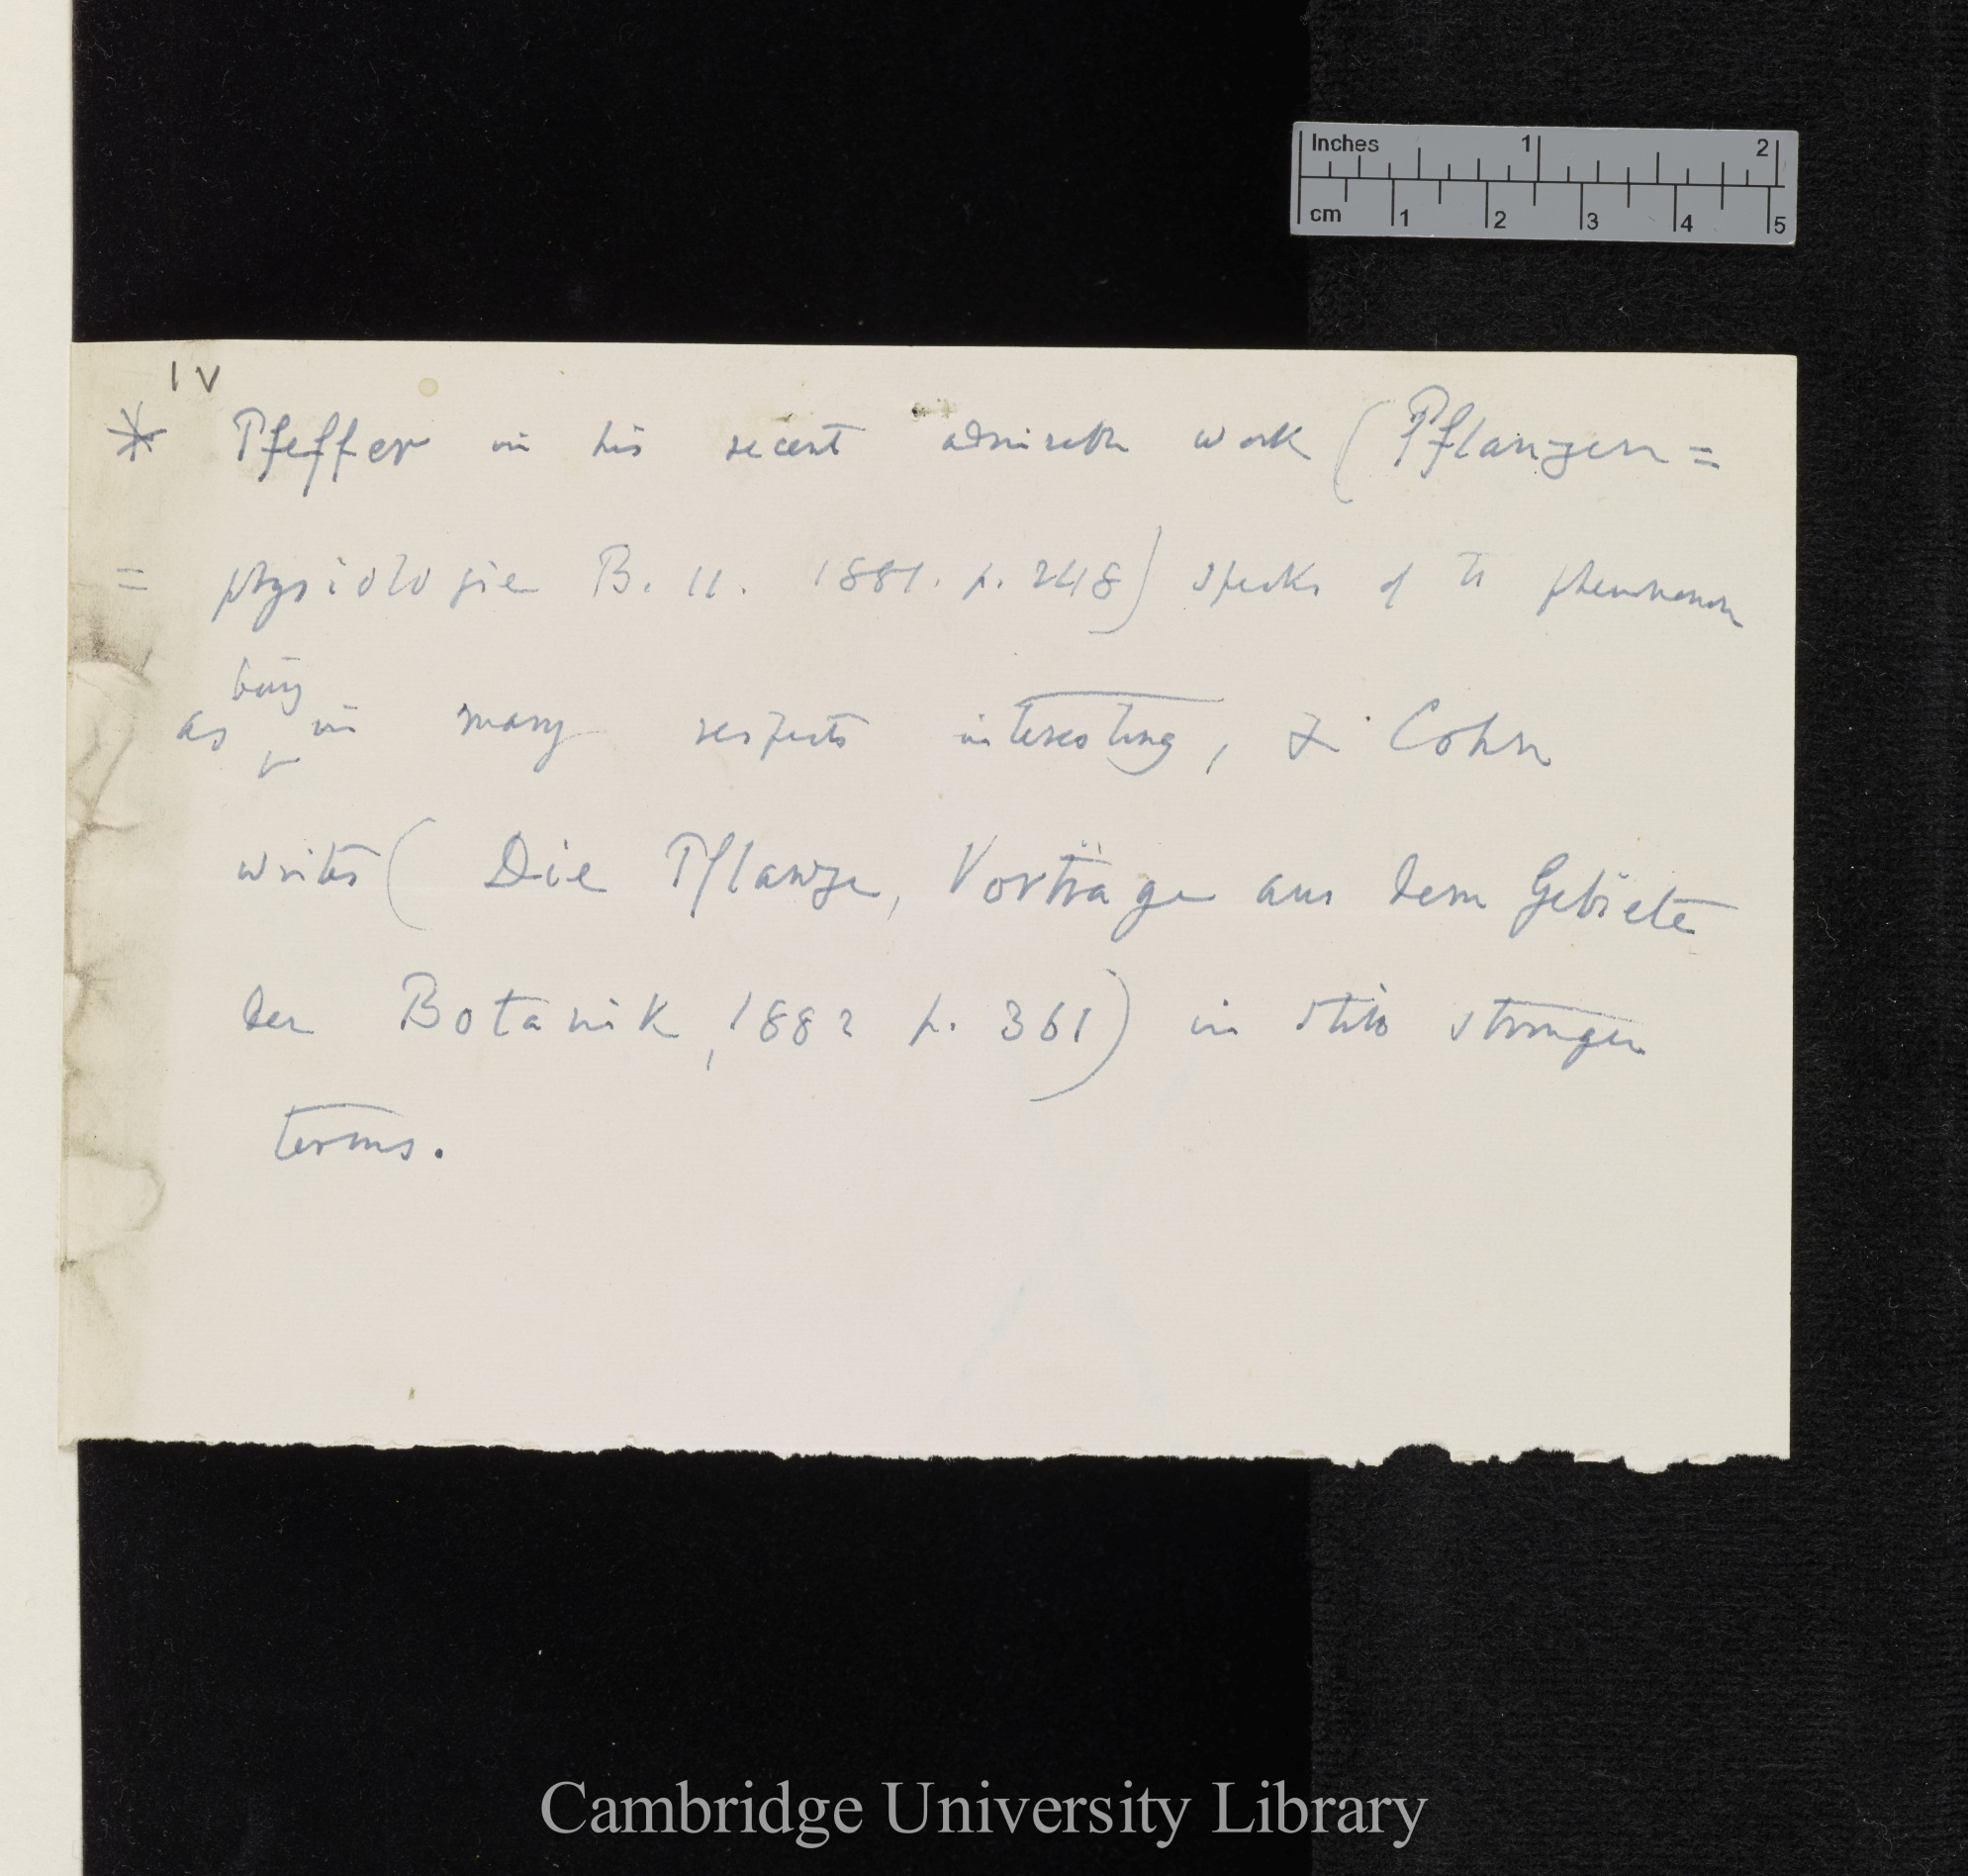 Inches 1 2
cm 1 2 3 4 5
IV
* Pfeffer in his recent admirable work (Pflanzen=
= physiologie B. II. 1881. p. 248) speaks of the phenomenon
being
as in many respects interesting, & Cohn
writes ( Die Pflanze, Vorträge aus dem Gebiete
der Botanik, 1882 p. 361) in still stronger
terms.
Cambridge University Library